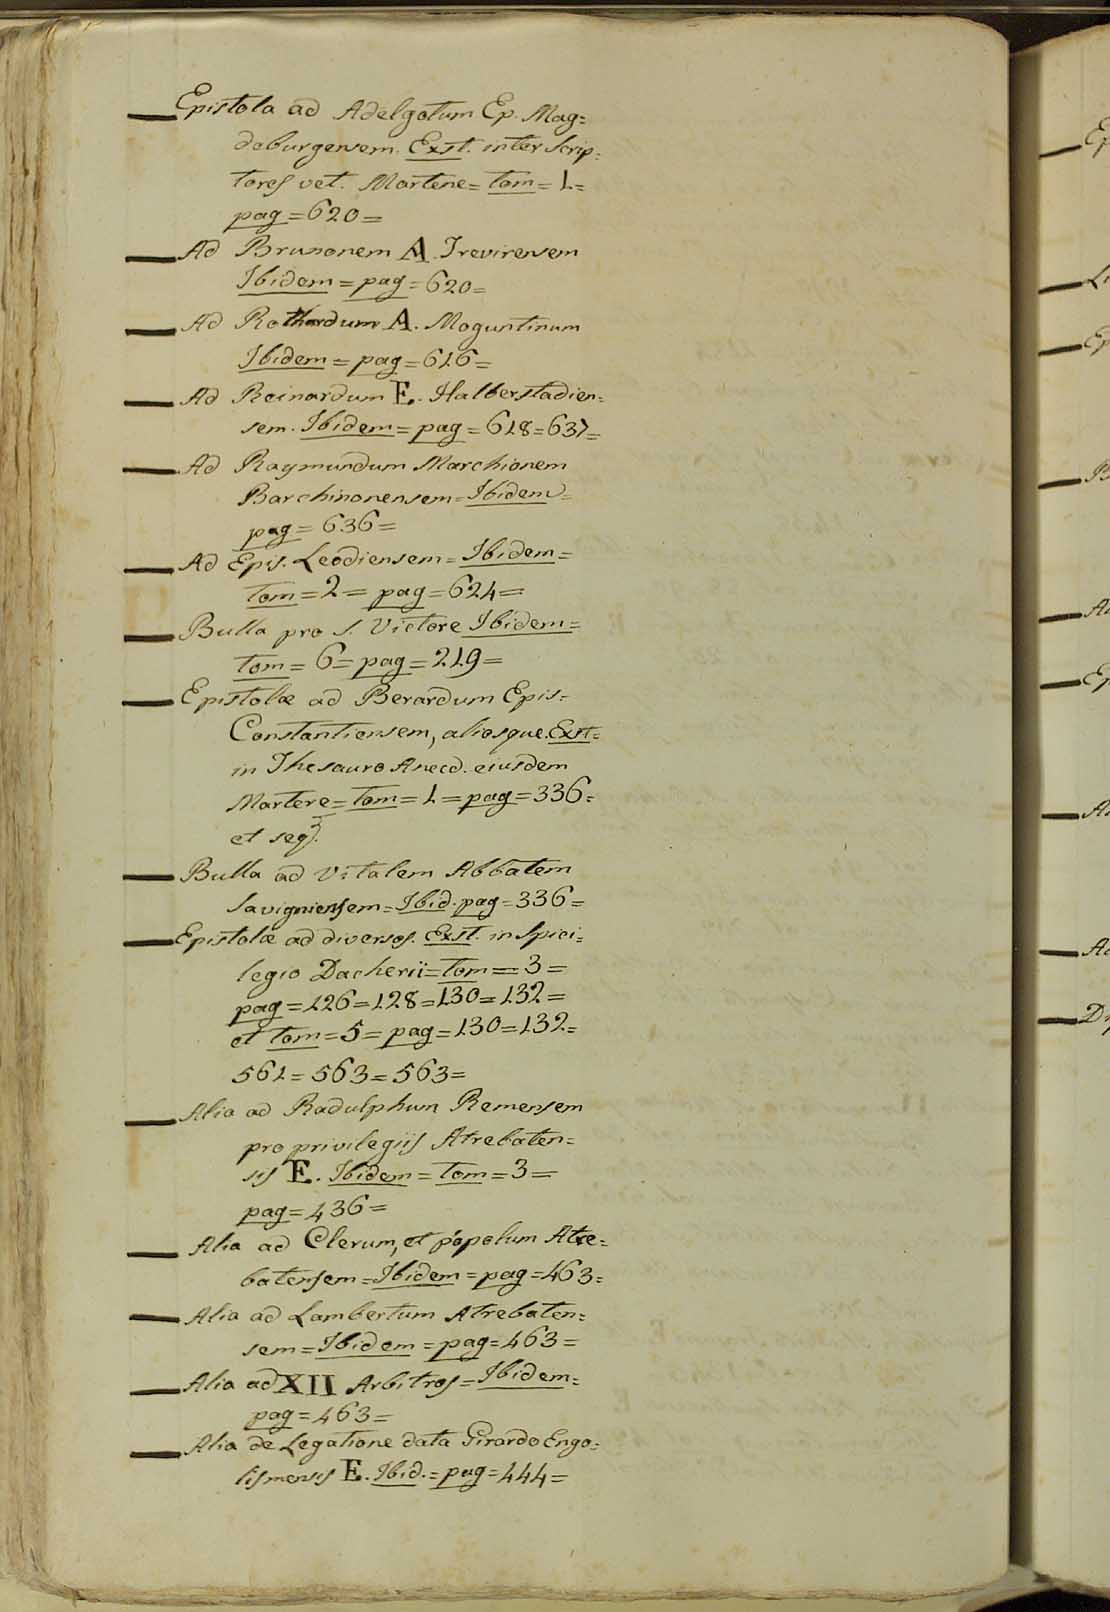 Epistola ad Adelgotum Ep. Mag=
deburgensem. Exst. inter Scrip=
tores vet. Martene= tom= 1=
pag=620=
Ad Brunonem A. Trevirensem
Ibidem= pag=620=
Ad Rothardum A. Moguntinum
Ibidem= pag=616=
Ad Reinardum E. Halberstadien=
sem. Ibidem= pag=618=637=
Ad Raymundum Marchionem
Barchinonensem= Ibidem=
pag= 636=
Ad Epis. Leodiensem= Ibidem=
tom=2= pag=624=
Bulla pro S. Victore Ibidem=
tom= 6= pag= 219=
Epistolæ ad Berardum Epis=
Constantiensem, aliosque. Exst=
in Thesauro Anecd. eiusdem
Martere= tom= 1= pag=336=
et seq.
Bulla ad Vitalem Abbatem
Savigniensem= Ibid. pag=336=
Epistolæ ad diversos. Exst. in Spici=
legio Dacherii= tom= 3=
pag=126=128=130=132=
et tom=5= pag=130=132=
561=563=563=
Alia ad Radulphum Remensem
pro privilegiis Atrebaten=
sis E. Ibidem= tom=3=
pag=436=
Alia ad Clerum, et popolum Atre=
batensem= Ibidem= pag=463=
Alia ad Lambertum Atrebaten=
sem= Ibidem= pag=463=
Alia ad XII Arbitros= Ibidem=
pag=463=
Alia de Legatione data Girardo Engo=
lismensis E. Ibid.= pag=444=
Ep
Ep
B
Ep
Ad